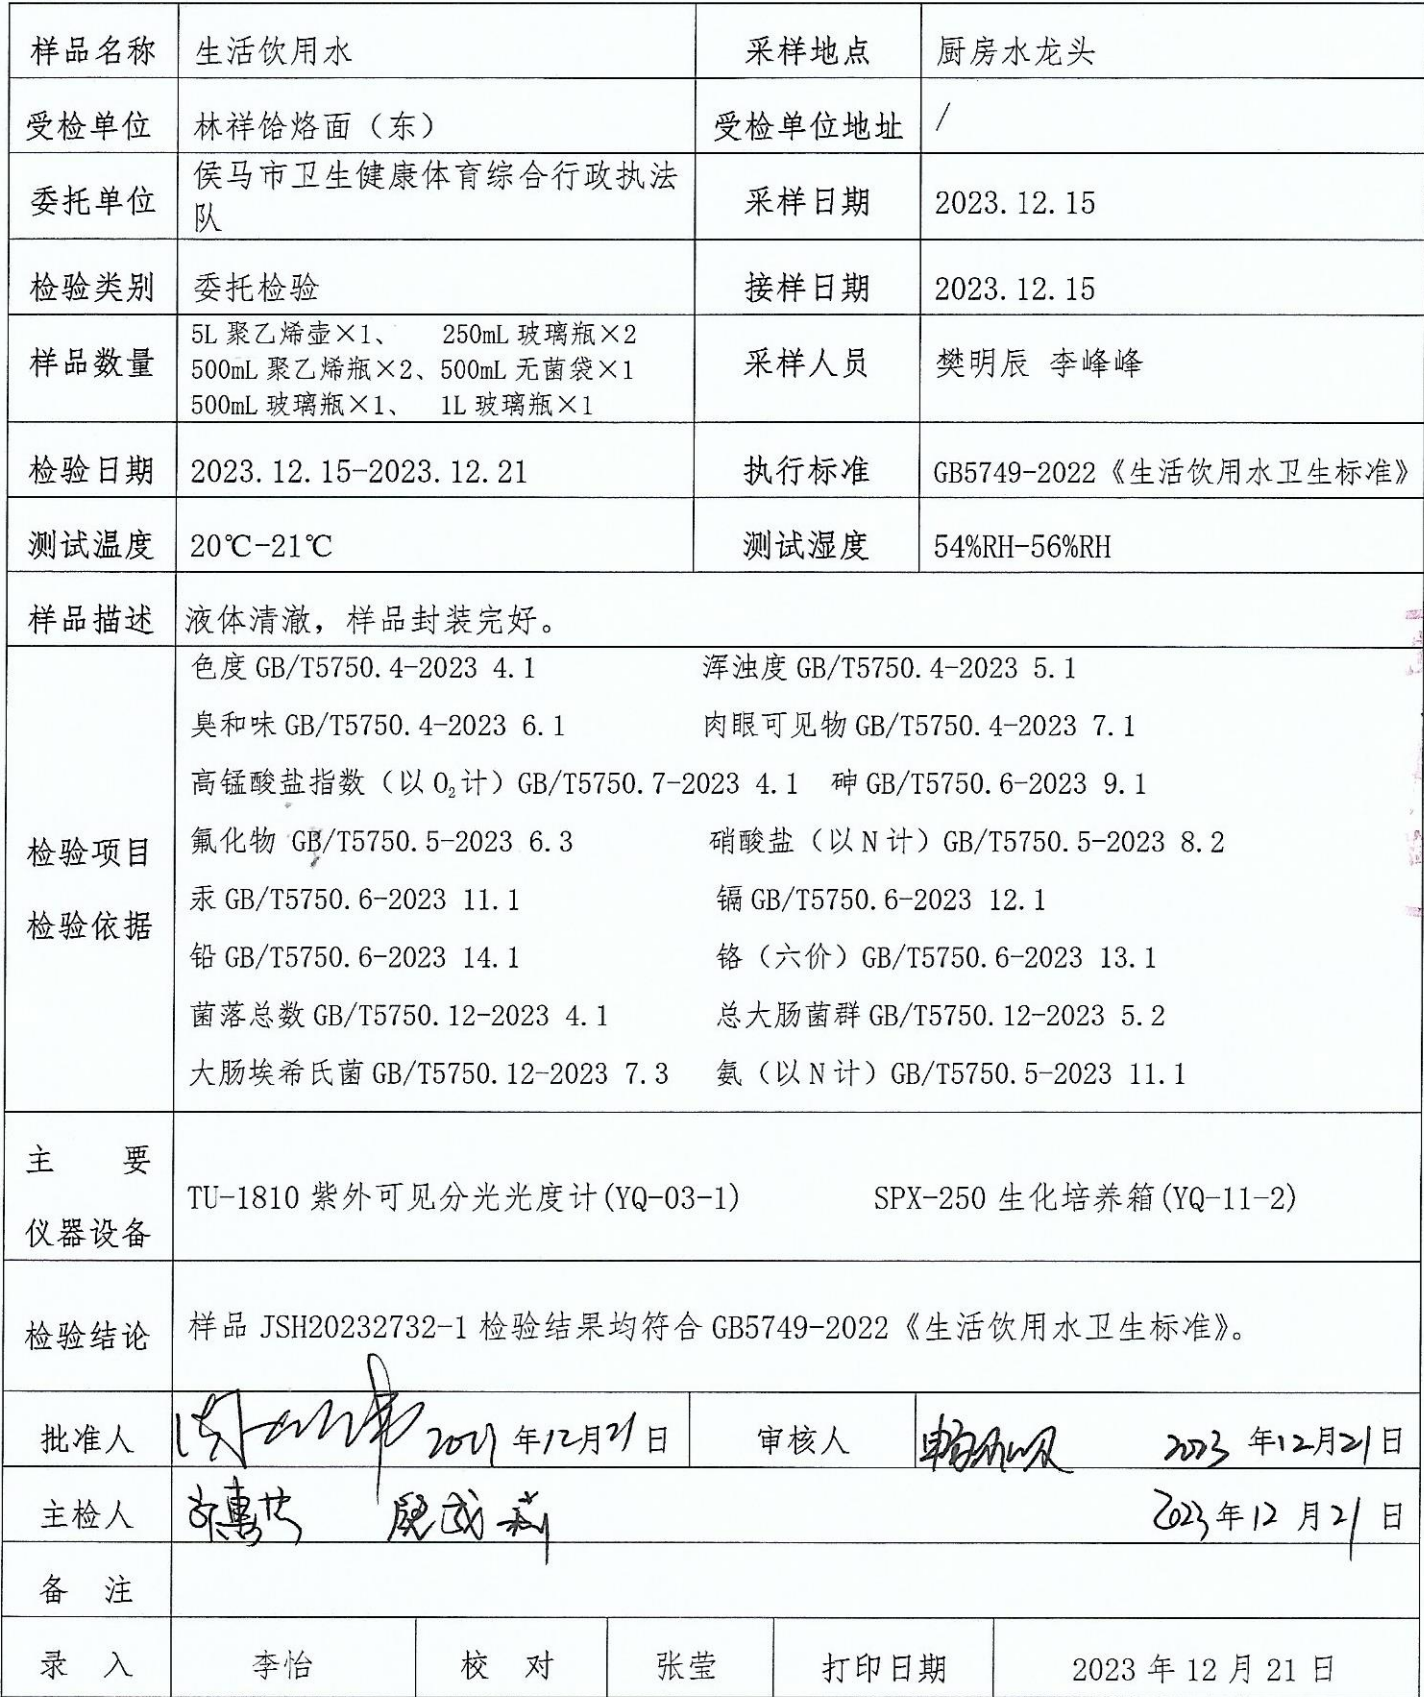 样品名称 生活饮用水 采样地点 厨房水龙头
受检单位 林祥饸烙面（东） 受检单位地址 /
委托单位 侯马市卫生健康体育综合行政执法
队 采样日期 2023.12.15
检验类别 委托检验 接样日期 2023.12.15
样品数量 5L 聚乙烯壶×1、 250mL 玻璃瓶×2
500mL 聚乙烯瓶×2、500mL 无菌袋×1
500mL 玻璃瓶×1、 1L 玻璃瓶×1
采样人员 樊明辰 李峰峰
检验日期 2023.12.15-2023.12.21 执行标准 GB5749-2022《生活饮用水卫生标准》
测试温度 20℃-21℃ 测试湿度 54%RH-56%RH
样品描述 液体清澈，样品封装完好。
检验项目
检验依据
色度 GB/T5750.4-2023 4.1 浑浊度 GB/T5750.4-2023 5.1
臭和味 GB/T5750.4-2023 6.1 肉眼可见物 GB/T5750.4-2023 7.1
高锰酸盐指数（以 O₂计）GB/T5750.7-2023 4.1 砷 GB/T5750.6-2023 9.1
氟化物 GB/T5750.5-2023 6.3 硝酸盐（以 N 计）GB/T5750.5-2023 8.2
汞 GB/T5750.6-2023 11.1 镉 GB/T5750.6-2023 12.1
铅 GB/T5750.6-2023 14.1 铬（六价）GB/T5750.6-2023 13.1
菌落总数 GB/T5750.12-2023 4.1 总大肠菌群 GB/T5750.12-2023 5.2
大肠埃希氏菌 GB/T5750.12-2023 7.3 氨（以 N 计）GB/T5750.5-2023 11.1
主 要
仪器设备
TU-1810 紫外可见分光光度计(YQ-03-1) SPX-250 生化培养箱(YQ-11-2)
检验结论 样品 JSH20232732-1 检验结果均符合 GB5749-2022《生活饮用水卫生标准》。
批准人 年12月21日 审核人 2023 年12月21日
主检人 2023年12月21日
备 注
录 入 李怡 校 对 张莹 打印日期 2023 年 12 月 21 日